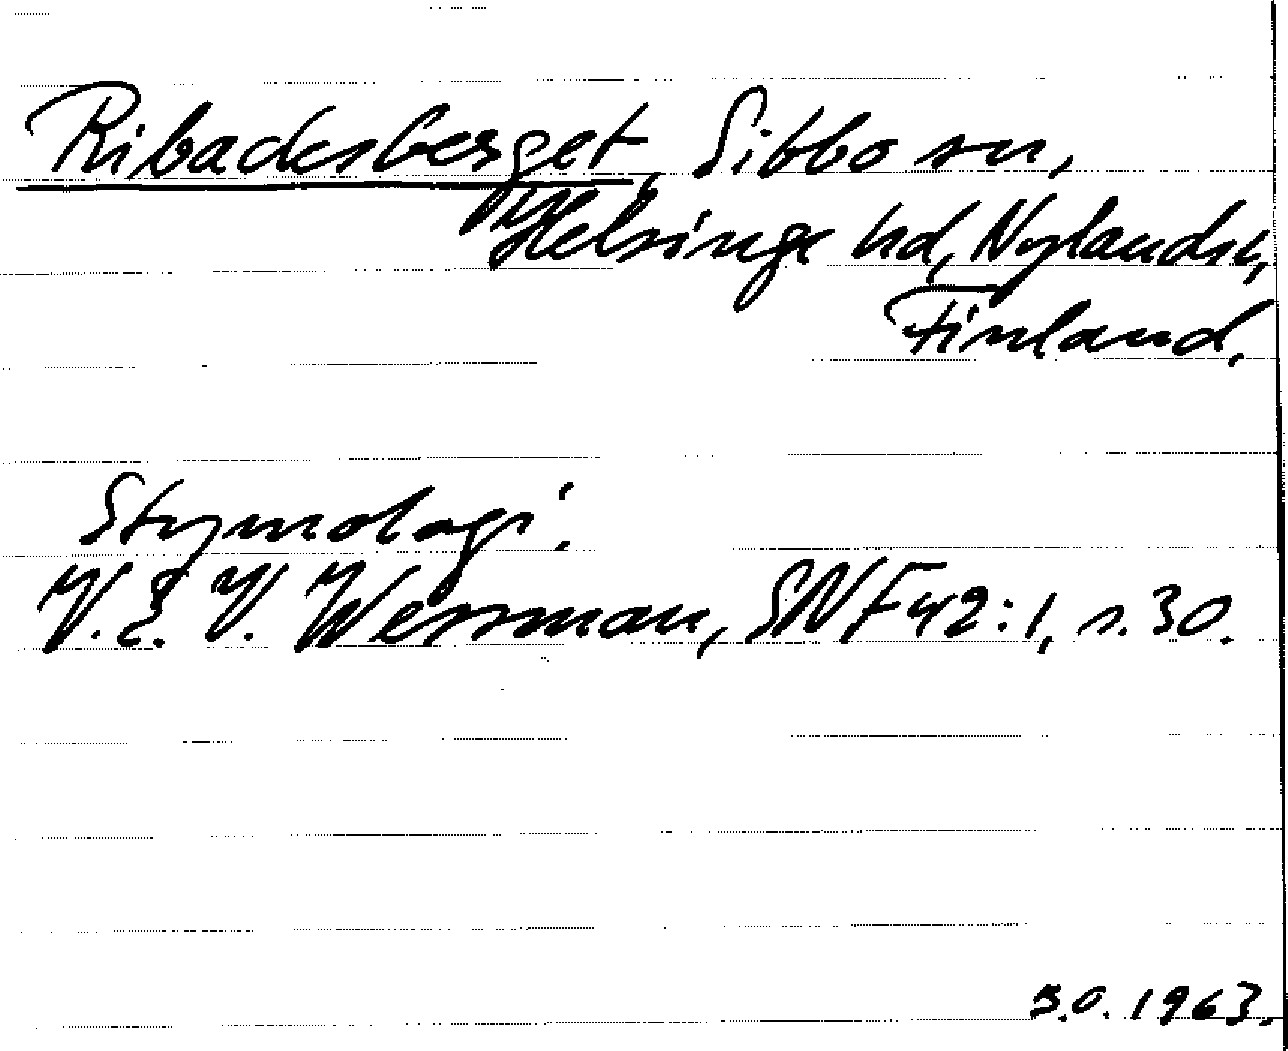 Ribacksberget, Sibbo sn,
Helsinge hd, Nylands l,
Finland.
Etymologi:
V.E.V. Wessman, SNF 42:1, s. 30.
S.O. 1963.